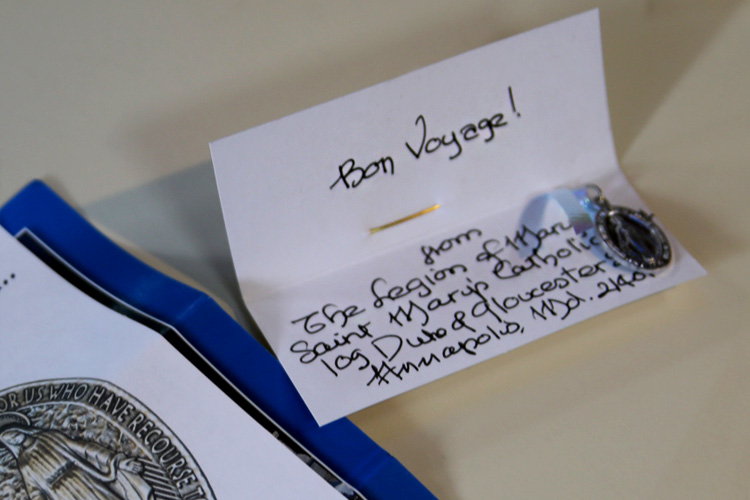 Bon Voyage!
from
The Legion of Mary
Saint Mary's Catholic
109 Duke of Gloucester
Annapolis, Md.
...
OR US WHO HAVE RECOURSE T